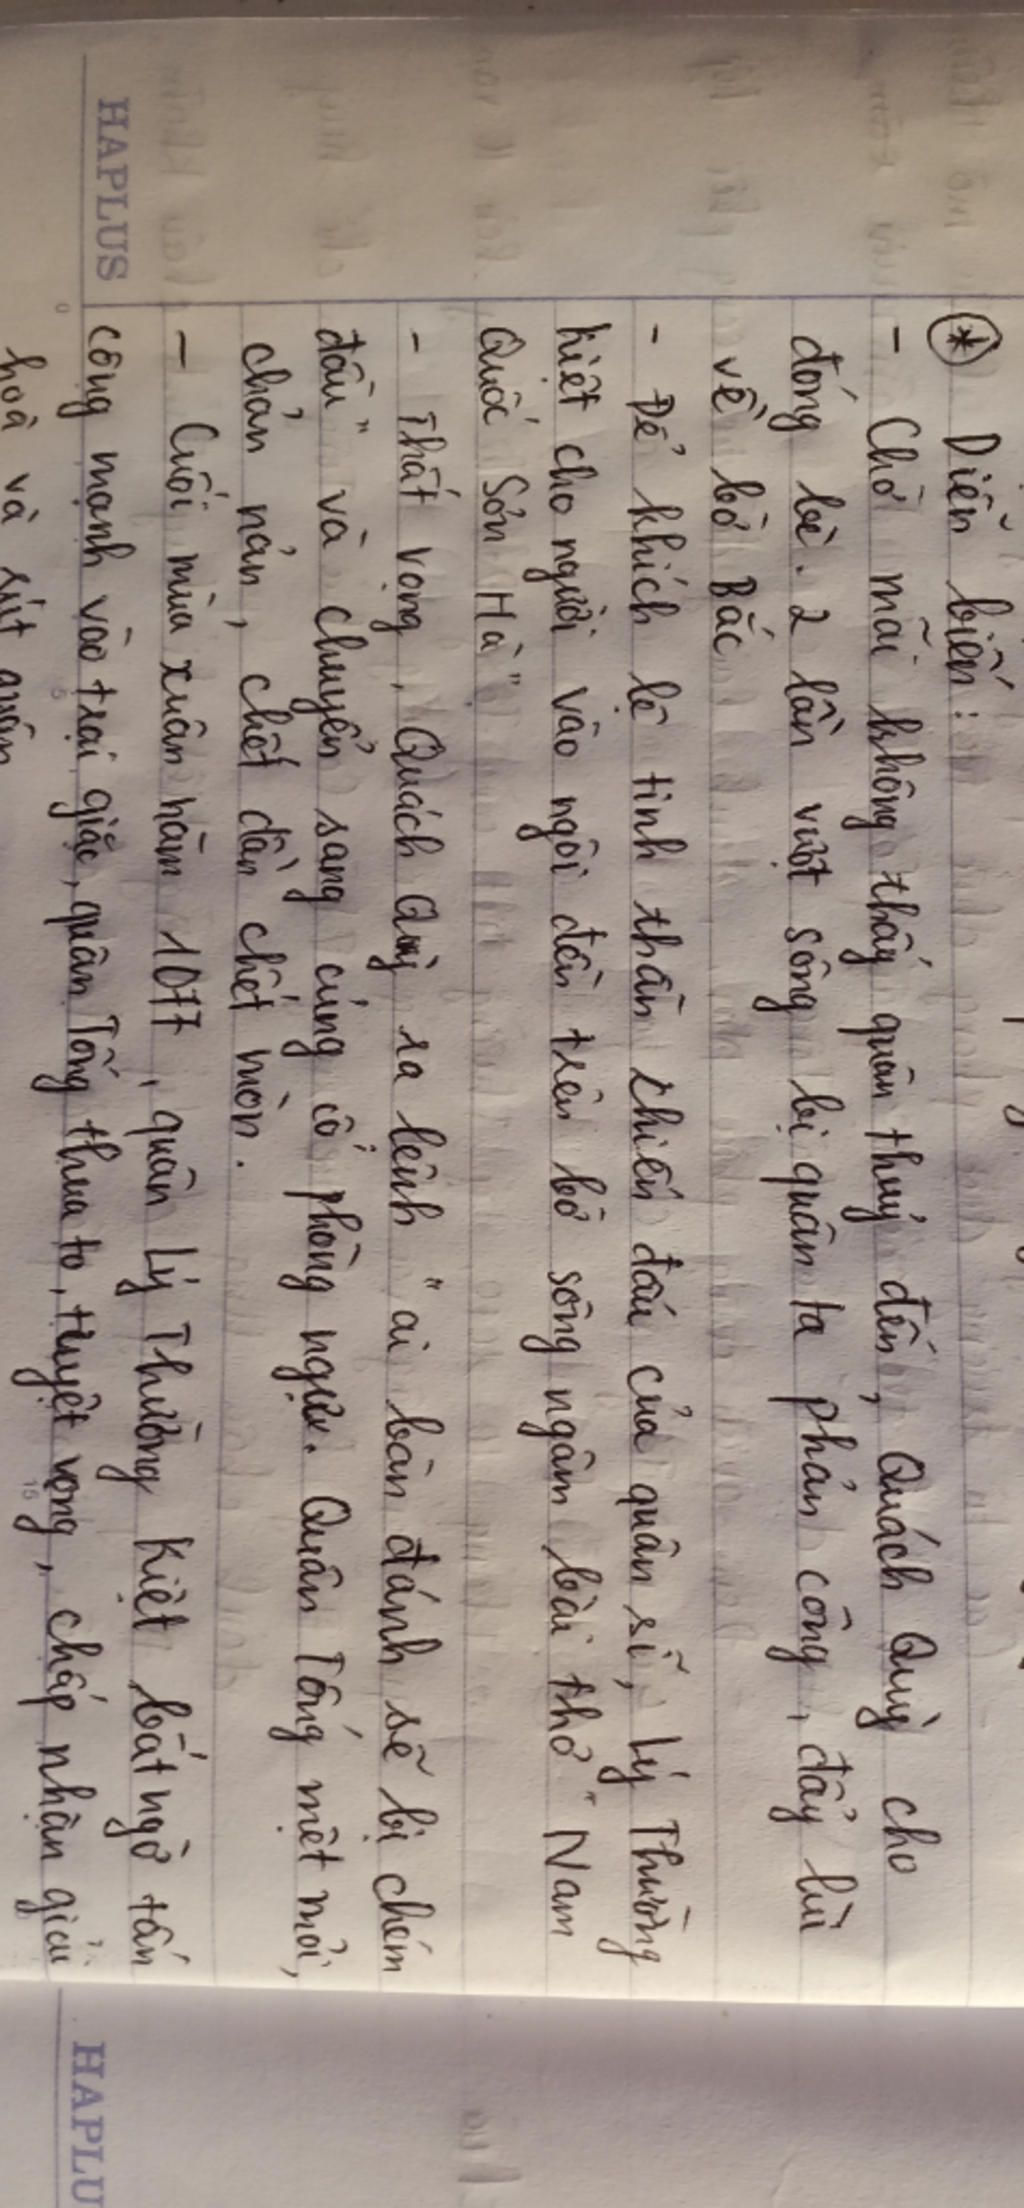 * Diễn biến:
- Chờ mãi không thấy quân thuỷ đến, Quách Quỳ cho
đóng bè. 2 lần vượt sông bị quân ta phản công, đẩy lùi
về bờ Bắc
- Để khích lệ tinh thần chiến đấu của quân sĩ, Lý Thường
Kiệt cho người vào ngôi đền trên bờ sông ngâm bài thơ "Nam
Quốc Sơn Hà"
- Thất vọng, Quách Quỳ ra lệnh "ai bàn đánh sẽ bị chém
đầu" và chuyển sang củng cố phòng ngự. Quân Tống mệt mỏi,
chán nản, chết dần chết mòn.
- Cuối mùa xuân năm 1077, quân Lý Thường Kiệt bất ngờ tấn
công mạnh vào trại giặc, quân Tống thua to, tuyệt vọng, chấp nhận giải
hoà và rút quân
HAPLUS
HAPLU